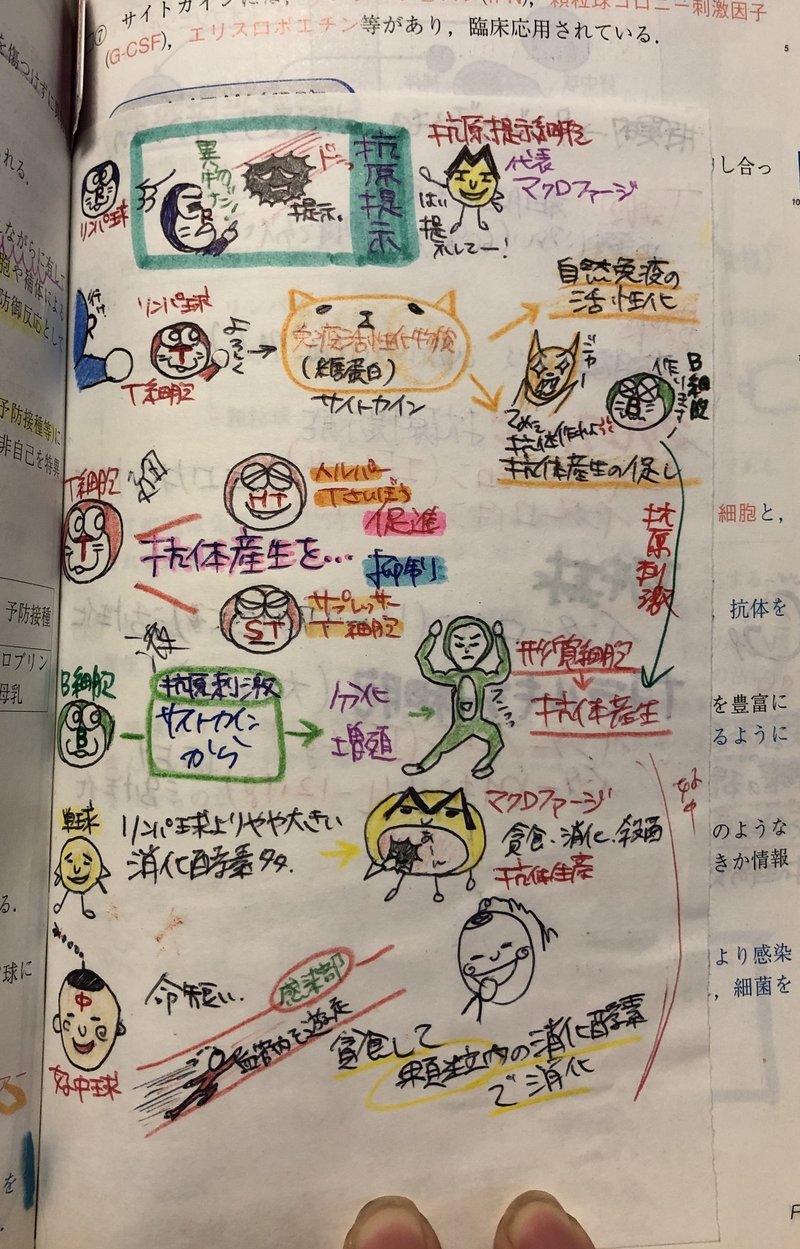 ① サイトカインには、
(IFN)，顆粒球コロニー刺激因子
(G-CSF)，エリスロポエチン等があり，臨床応用されている．
を傷つけずに
れる．
ながらに有して
胞や補体による
防御反応として
予防接種等)に
非自己を特異
予防接種
ロブリン
母乳
る．
球に
を
リンパ球
異物のナシ!
ドーッ
提示。
抗原提示
抗原提示細胞
代表
マクロファージ
はい
提示してー!
行け
リンパ球
T
T細胞
よろしく
免疫活性化物質
(糖蛋白)
サイトカイン
自然免疫の
活性化
抗体作れよ
抗体産生の促し
作ります
B細胞
B
抗原刺激
T細胞
T
HT
ヘルパー
Tさいぼう
促進
抗体産生を…
抑制
ST
サプレッサー
T細胞
B細胞
B
抗原刺激
サイトカイン
から
分化
増殖
形質細胞
抗体産生
単球
リンパ球よりやや大きい
消化酵素多々.
あーん
マクロファージ
貪食・消化・殺菌
抗体生産
好中
中
好中球
命短い.
感染部
血管内を遊走
貪食して
顆粒内の消化酵素
で消化
し合っ
細胞と，
抗体を
を豊富に
るように
のような
きか情報
より感染
，細菌を
5
10